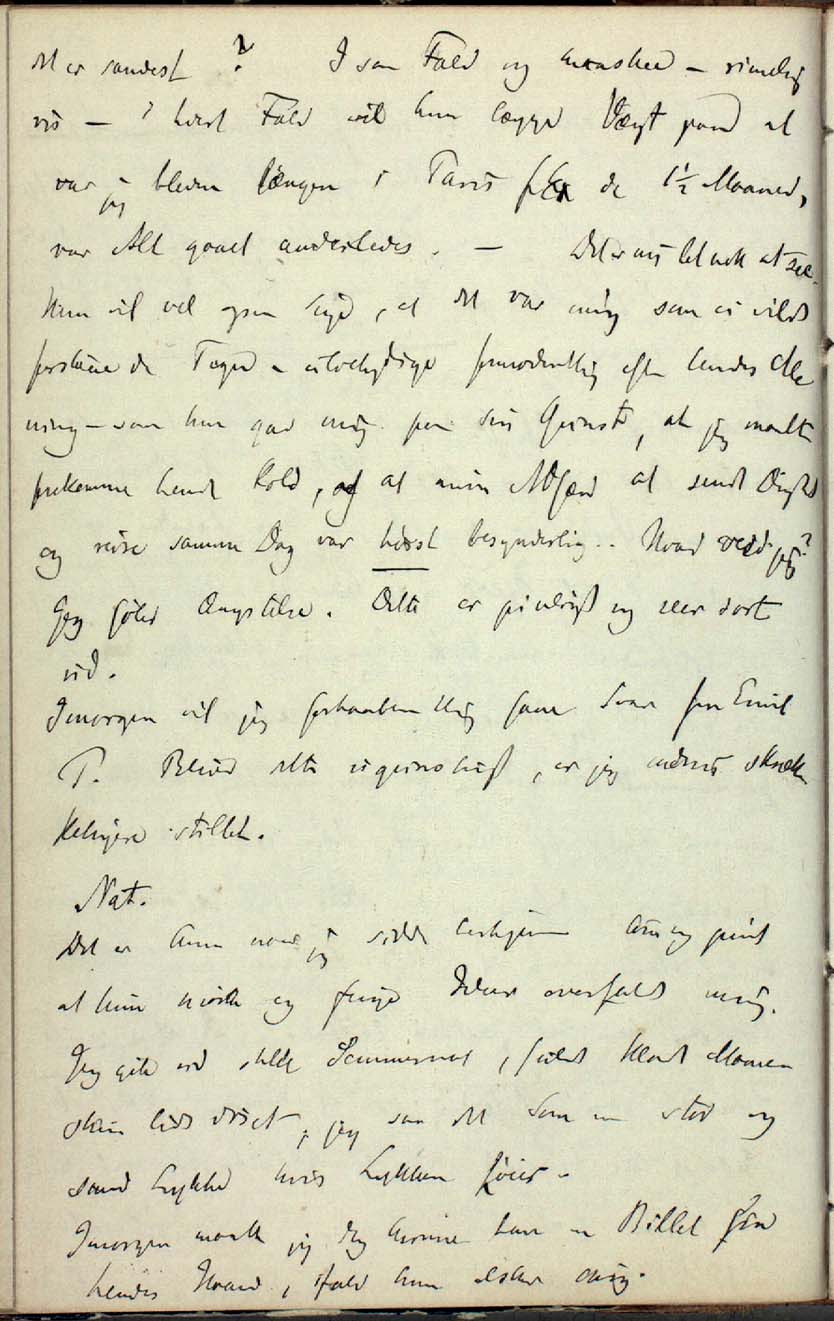 det er sandest? I saa Fald og maaskee – rimelig
vis – i hvert Fald vil hun lægge Vægt paa at
var jeg bleven længer i Paris end de 1½ Maaned,
var Alt gaaet anderledes. – Det er nu let nok at see.
Hun vil vel ogsaa sige, at det var mig som ei vilde
forstaae de Tegn – utvetydige formodentlig efter hendes Me
ning – som hun gav mig paa sin Gunst, at jeg maatte
forekomme hende kold, og at min Adfærd at sende Digtet
og reise samme Dag var høist besynderlig.. Hvad veed jeg?
Jeg føler Ængstelse. Dette er pinligt og seer sort
ud.
Imorgen vil jeg forhaabentlig faae Svar fra Emil
P. Bliver dette ugunstigt, er jeg endnu skræk
keligere stillet.
Nat.
Det er kun naar jeg sidder herhjemme ene og piint
at hine mørke og Ideer overfalde mig.
Jeg gik ud stille Sommernat, fuldt klart Maane
skin lidt drict, jeg saa det som en stor og
sand Lykke hvis Lykken føier.
Imorgen maatte jeg dog kunne have en Billet fra
hendes Haand, ifald hun elsker mig.